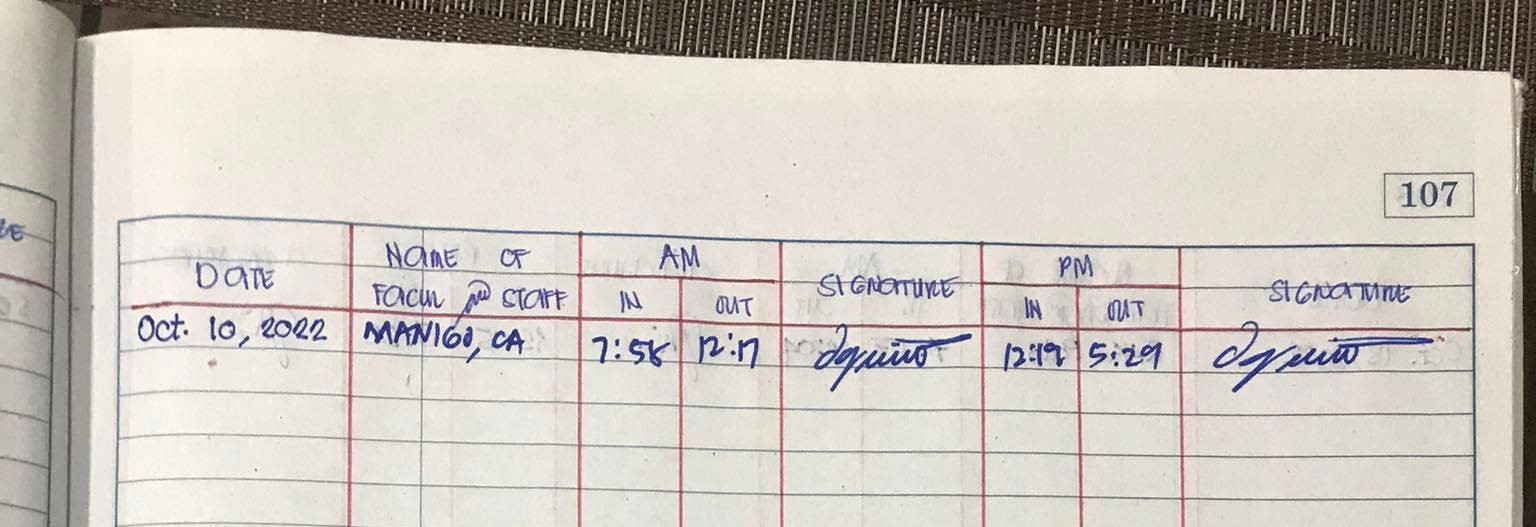 107
DATE
NAME OF
FACUL AND STAFF
AM
IN OUT
SIGNATURE
PM
IN OUT
SIGNATURE
Oct. 10, 2022 MANIGO, CA 7:58 12:17 12:19 5:29